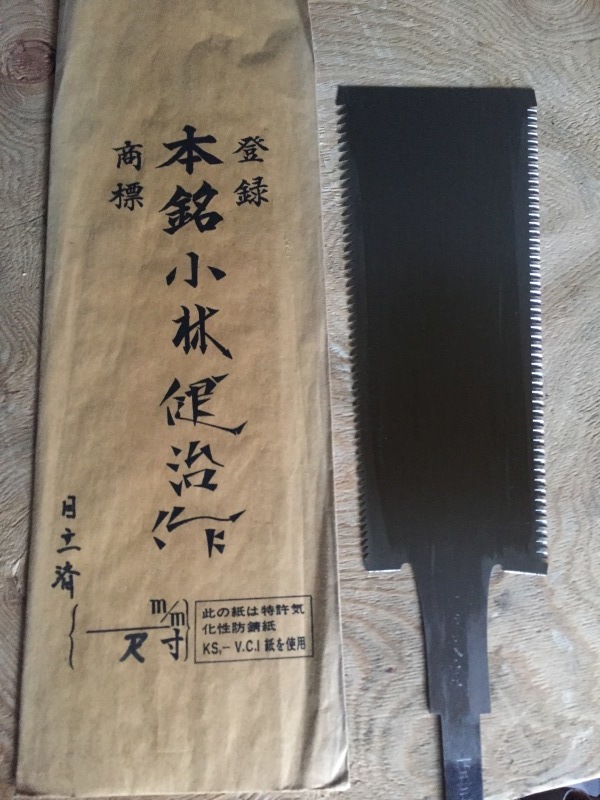 登録
本銘小林健治作
商標
目立済
m/m
尺寸
此の紙は特許気
化性防錆紙
KS,-V.C.I 紙を使用